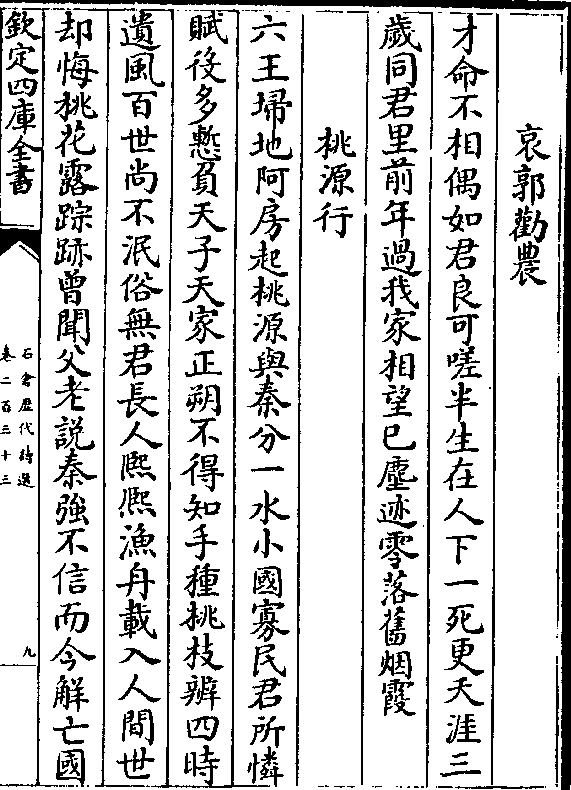 哀郭勸農
才命不相偶如君良可嗟半生在人下一死更天涯三
歲同君里前年過我家相望已塵迹零落舊烟霞
桃源行
六王埽地阿房起桃源與秦分一水小國寡民君所憐
賦役多慙負天子天家正朔不得知手種桃枝辨四時
遺風百世尚不泯俗無君長人熈熈漁舟載入人間世
却悔桃花露踪跡曾聞父老說秦強不信而今解亡國
欽定四庫全書
石倉歷代詩選
卷二百三十三
九